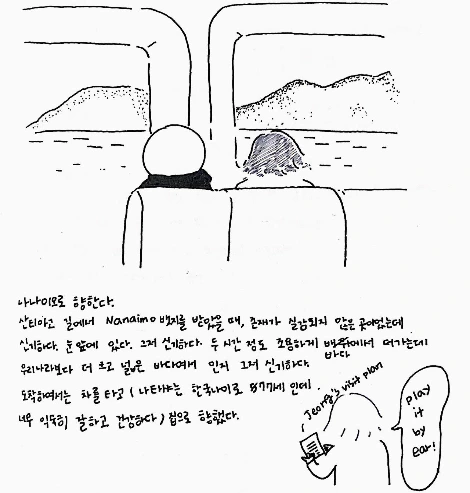 나나이모로 향한다.
산티아고 길에서 Nanaimo 뱃지를 받았을 때, 존재가 실감되지 않은 곳이었는데
신기하다. 눈 앞에 있다. 그저 신기하다. 두 시간 정도 조용하게 에서 떠가는데
바다
우리나라보다 더 크고 넓은 바다여서 인지 그저 신기하다.
도착하여서는 차를 타고 ( 나타샤는 한국나이로 77세 인데
너무 익숙히 잘하고 건강하다 ) 집으로 향했다.
Jeong's visit plan
play
it
by
ear!